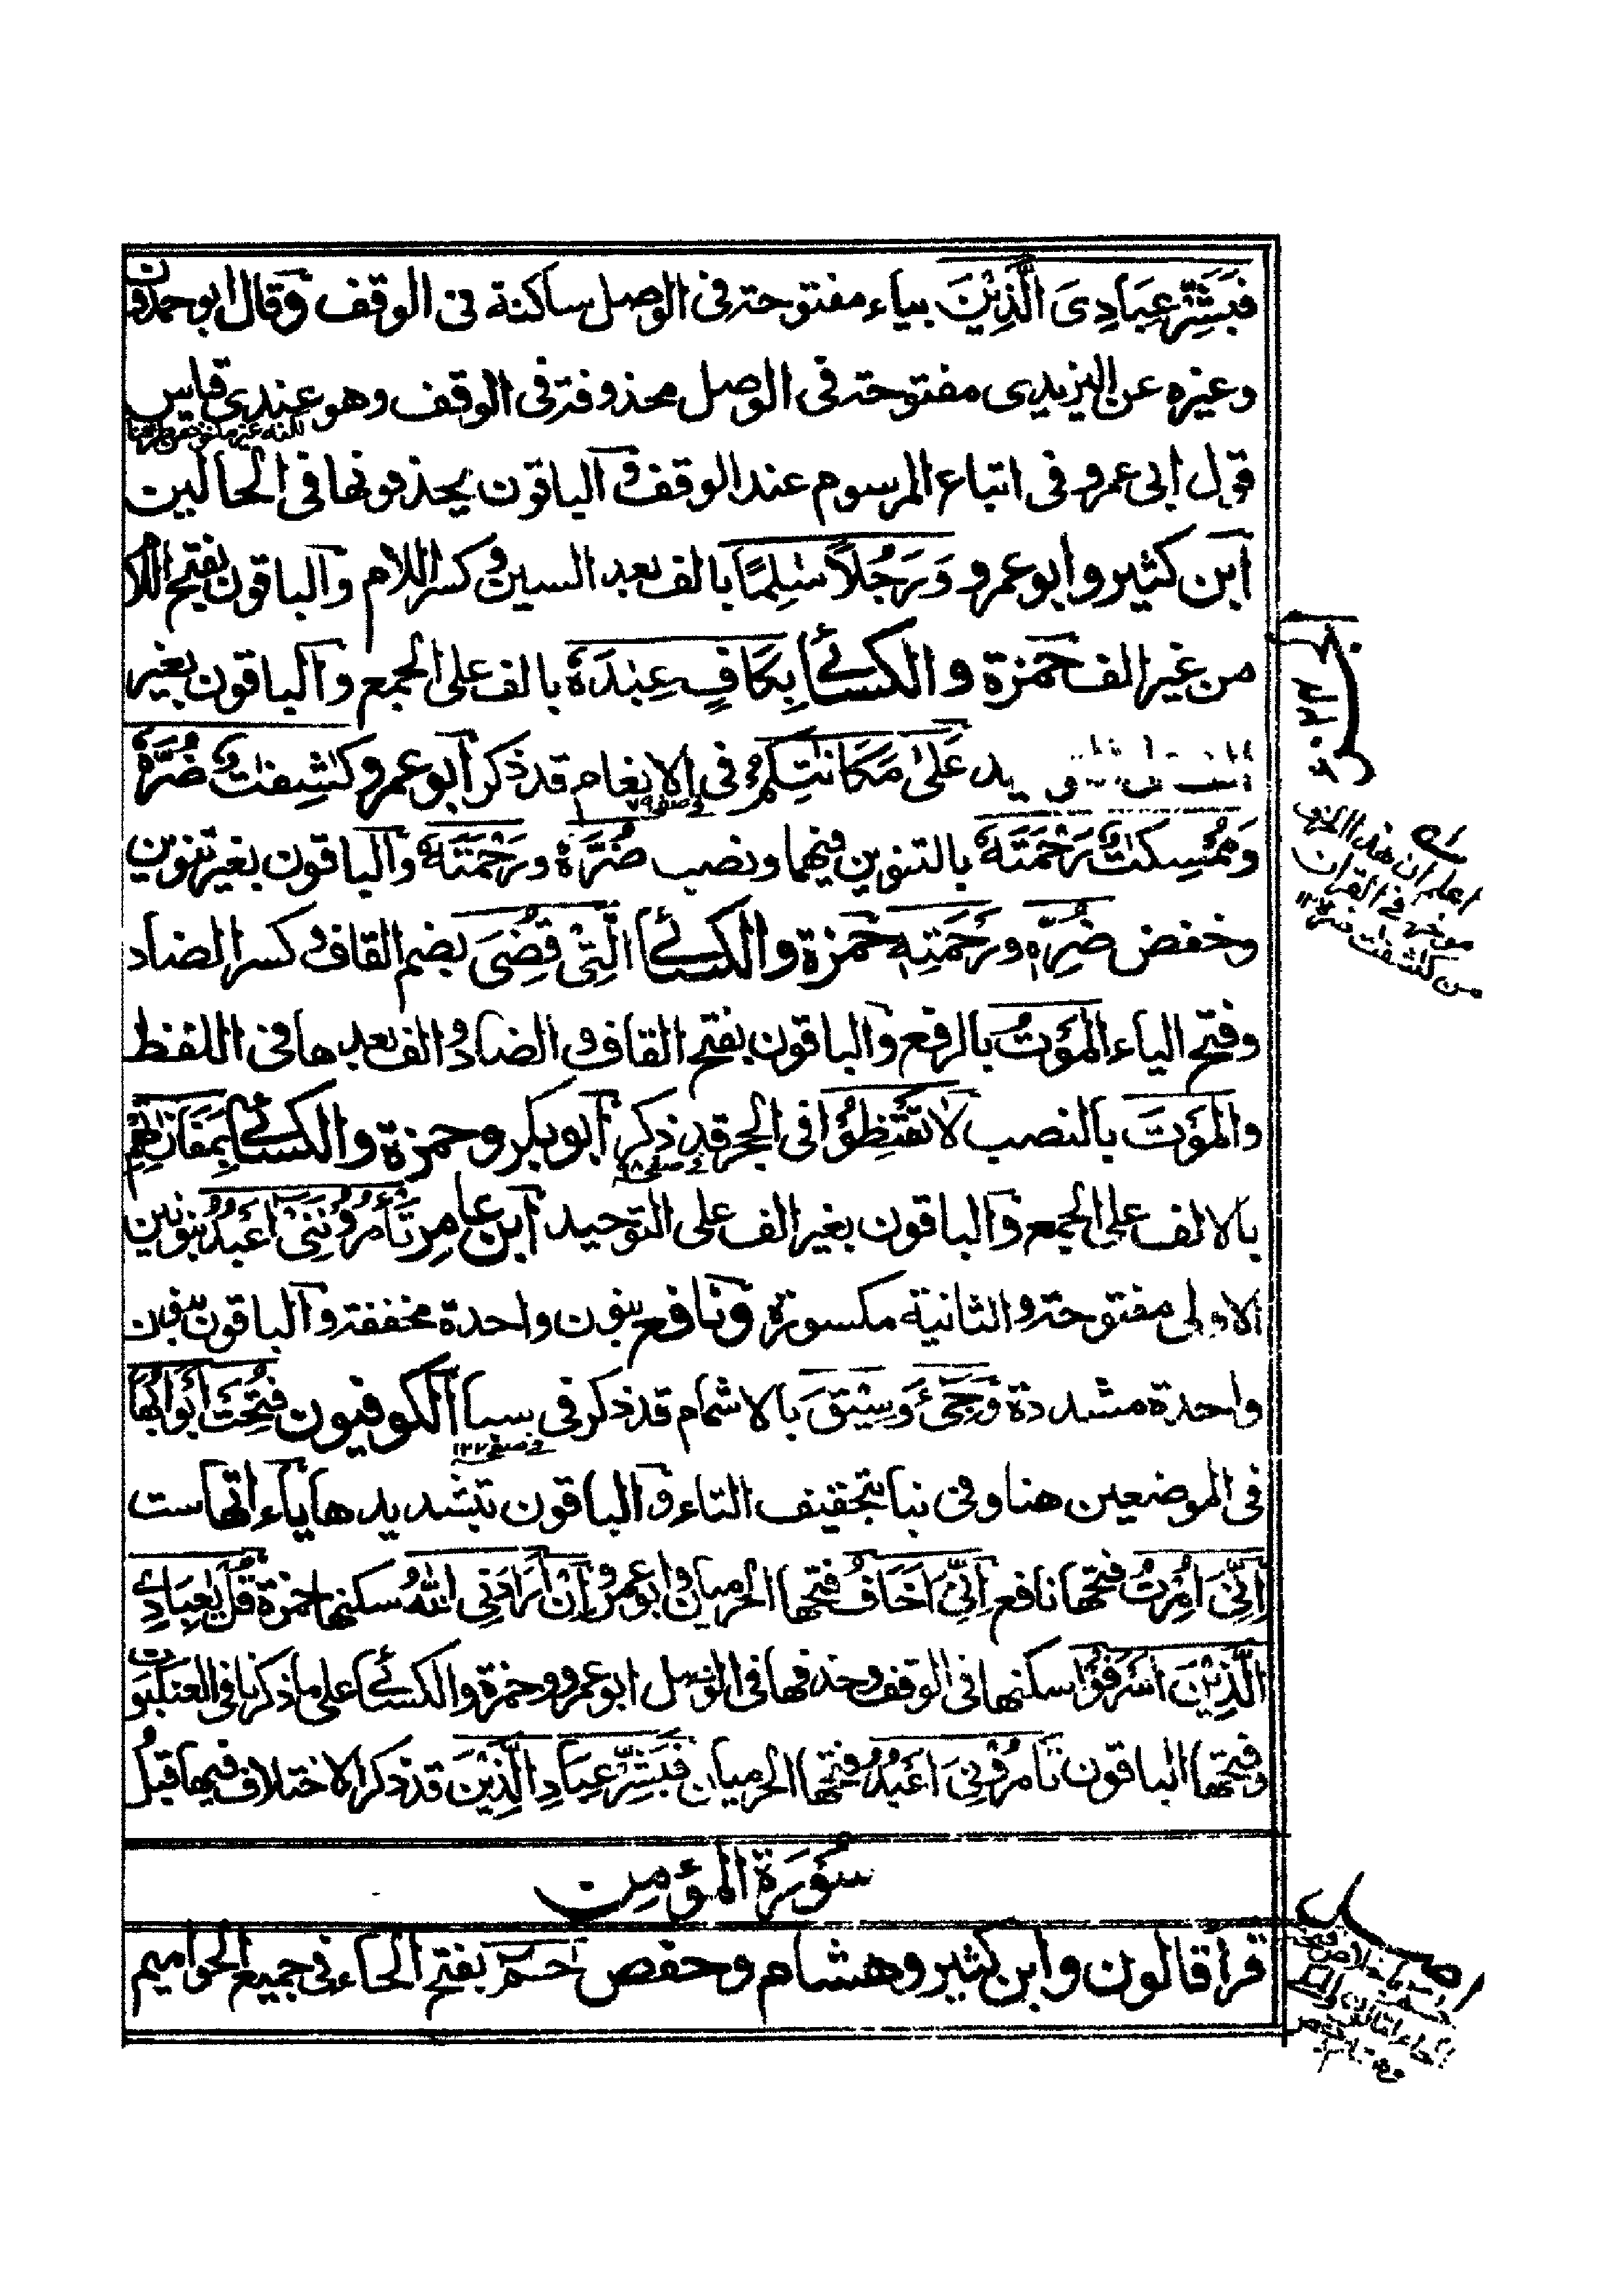 فَبَشِّرْ عِبَادِىَ الَّذِيْنَ بياء مفتوحة فى الوصل ساكنة فى الوقف وقال ابو حمدون
وغيره عن اليزيدى مفتوحة فى الوصل محذوفة فى الوقف وهو عندى قياس
قول ابى عمرو فى اتباع المرسوم عند الوقف والباقون يحذفونها فى الحالين
ابن كثير وابو عمرو وَرَجُلاً سٰلِمًا بالف بعد السين وكسر اللام والباقون بفتح اللا
من غير الف حمزة والكسائى بِكَافٍ عِبٰدَهٗ بالف على الجمع والباقون بغير
يد عَلىٰ مَكَانٰتِكُمْ فى الانعام قد ذكر ابو عمرو كٰشِفٰتٌ ضُرَّهٗ
فے صفہ ٧٩
وَمُمْسِكٰتٌ رَحْمَتَهٗ بالتنوين فيهما ونصب ضُرَّهٗ ورَحْمَتَهٗ والباقون بغير تنوين
وخفض ضُرِّهٖ ورَحْمَتِهٖ حمزة والكسائى الَّتِىْ قُضِىَ بضم القاف وكسر الضاد
وفتح الياء الْمَوْتُ بالرفع والباقون بفتح القاف والضاد والف بعدها فى اللفظ
والْمَوْتَ بالنصب لَا تَقْنَطُوْا فى الحجر قد ذكر ابو بكر وحمزة والكسائى بِمَفَازٰتِهِمْ
بالالف على الجمع والباقون بغير الف على التوحيد ابن عامر تَأْمُرُوْنَنِىْ اَعْبُدُ بنونين
الاولى مفتوحة والثانية مكسورة ونافع بنون واحدة مخففة والباقون بنون
واحدة مشددة وَجِىْءَ وَسِيْقَ بالاشمام قد ذكر فى سبا الكوفيون فُتِحَتْ اَبْوَابُهَا
فے صفہ ١٢٢
فى الموضعين هنا وفى نبا بتخفيف التاء والباقون بتشديدها ياءاتها ست
اِنِّىَ اُمِرْتُ فتحها نافع اِنِّىَ اَخَافُ فتحها الحرميان وابو عمرو اِنْ اَرَادَنِىَ اللّٰهُ سكنها حمزة قُلْ يٰعِبَادِىَ
الَّذِيْنَ اَسْرَفُوْا سكنها فى الوقف وحذفها فى الوصل ابو عمرو وحمزة والكسائى على ما ذكرنا فى العنكبوت
وفتحها الباقون تَأْمُرُوْنِىَ اَعْبُدُ فتحها الحرميان فَبَشِّرْ عِبَادِ الَّذِيْنَ قد ذكر الاختلاف فيها قبل
سُوْرَة المؤمن
قرأ قالون وابن كثير وهشام وحفص حٰمٓ بفتح الحاء فى جميع الحواميم
اعلم ان هذا
فى القران
من كاشفات ضره